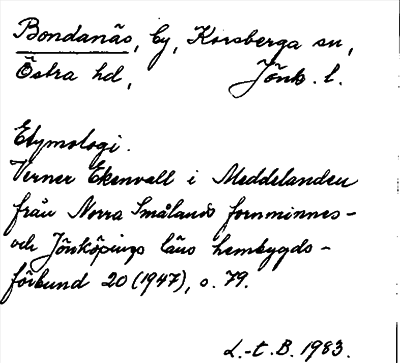 Bondanäs, by, Korsberga sn,
Östra hd, Jönk. l.
Etymologi.
Verner Ekenvall i Meddelanden
från Norra Smålands fornminnes-
och Jönköpings läns hembygds-
förbund 20 (1947), s. 79.
L.-t. B. 1983.